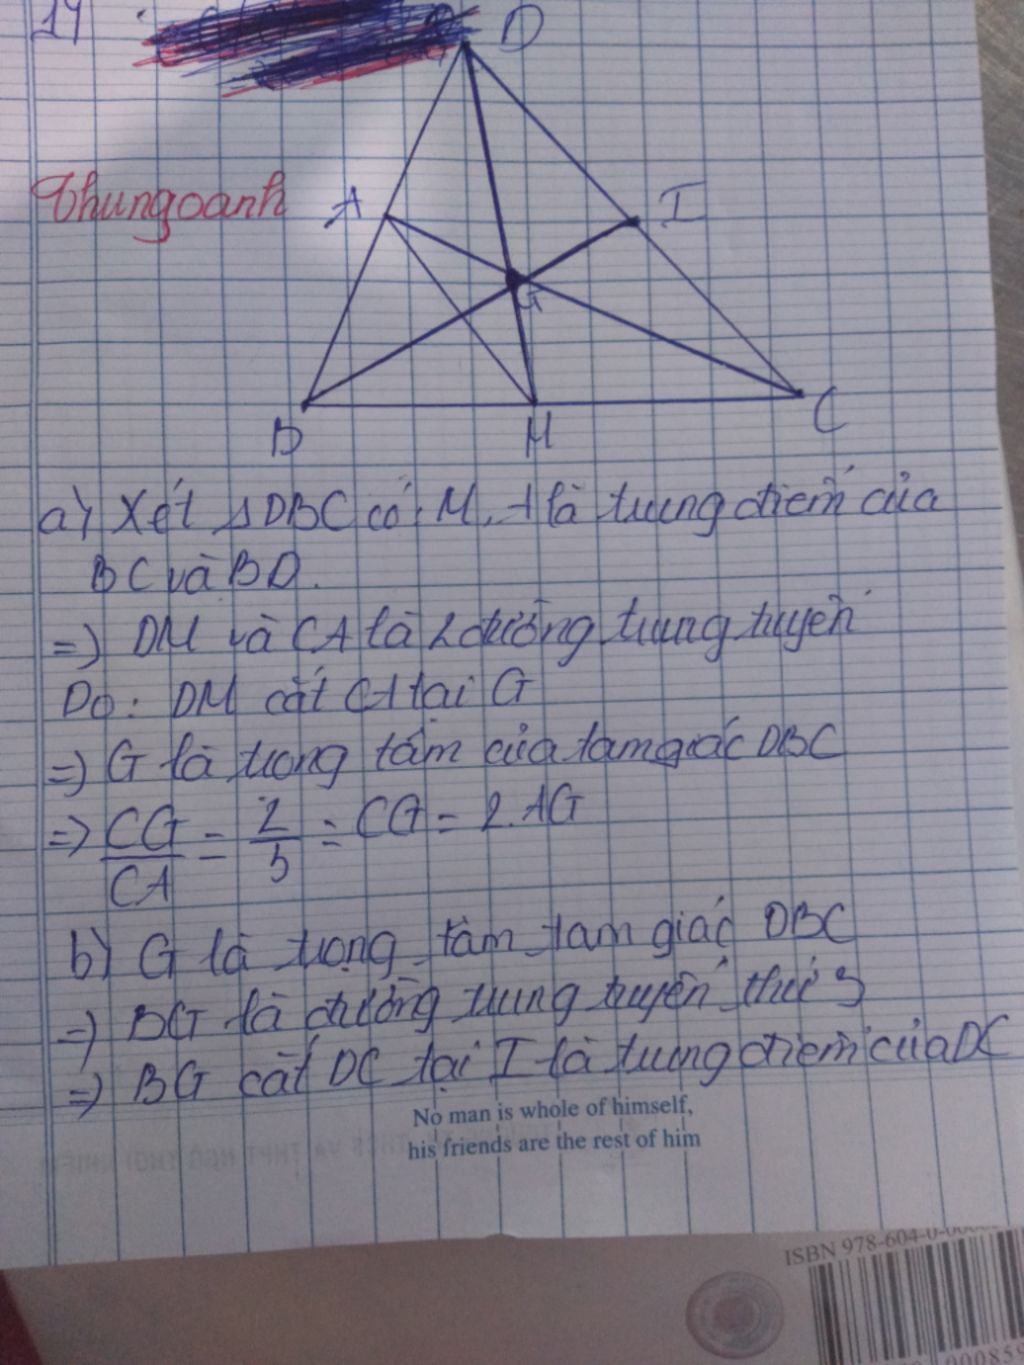 14
D
Thungoanh
A
I
G
B
M
C
a) Xét ΔDBC có: M, A là trung điểm của
BC và BD.
=) DM và CA là 2 đường trung tuyến
Do: DM cắt CA tại G
=) G là trọng tâm của tam giác DBC
=) CG/CA = 2/3 = CG = 2.AG
b) G là trọng tâm tam giác DBC
=) BG là đường trung tuyến thứ 3
=) BG cắt DC tại I là trung điểm của DC
No man is whole of himself,
his friends are the rest of him
ISBN 978-604-0-